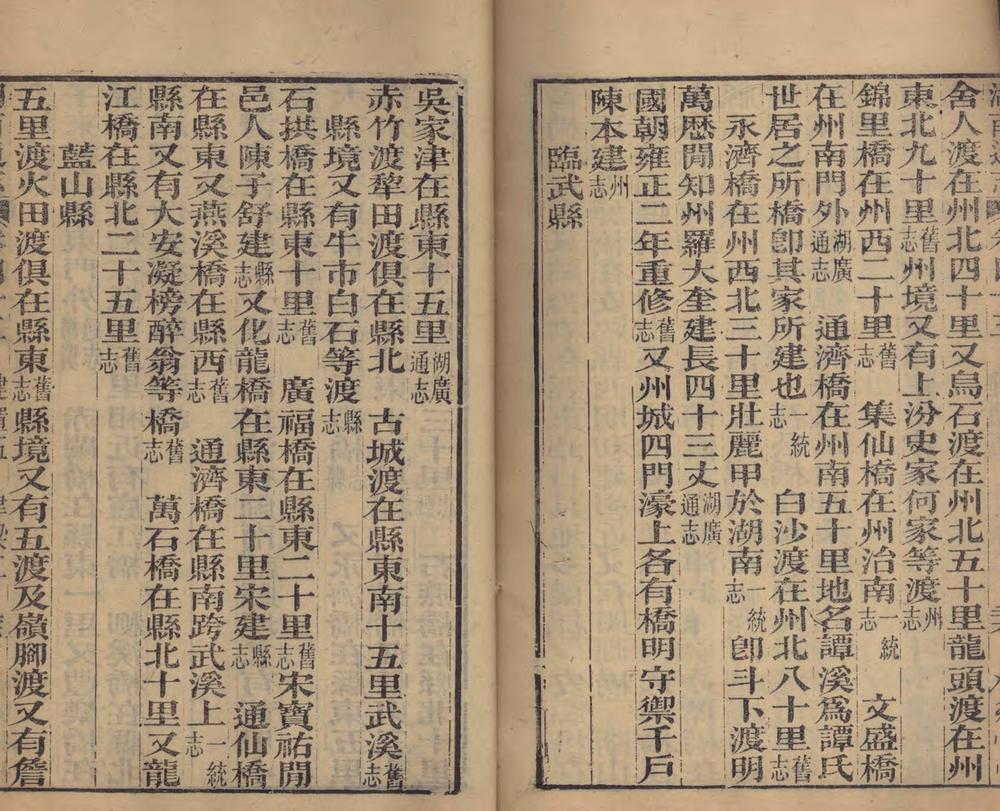 舍人渡在州北四十里又烏石渡在州北五十里龍頭渡在州
東北九十里舊志州境又有上汾史家何家等渡州志
錦里橋在州西二十里舊志 集仙橋在州治南一統志 文盛橋
在州南門外湖廣通志 通濟橋在州南五十里地名譚溪爲譚氏
世居之所橋卽其家所建也一統志 白沙渡在州北八十里舊志
永濟橋在州西北三十里壯麗甲於湖南一統志 卽斗下渡明
萬歷閒知州羅大奎建長四十三丈湖廣通志
國朝雍正二年重修舊志又州城四門濠上各有橋明守禦千戶
陳本建州志
臨武縣
吳家津在縣東十五里湖廣通志
赤竹渡犂田渡俱在縣北 古城渡在縣東南十五里武溪舊志
縣境又有牛市白石等渡縣志
石拱橋在縣東十里舊志 廣福橋在縣東二十里舊志宋寶祐閒
邑人陳子舒建縣志又化龍橋在縣東二十里宋建縣志 通仙橋
在縣東又燕溪橋在縣西舊志 通濟橋在縣南跨武溪上一統志
縣南又有大安凝榜醉翁等橋舊志 萬石橋在縣北十里又龍
江橋在縣北二十五里舊志
藍山縣
五里渡火田渡俱在縣東舊志縣境又有五渡及嶺腳渡又有詹